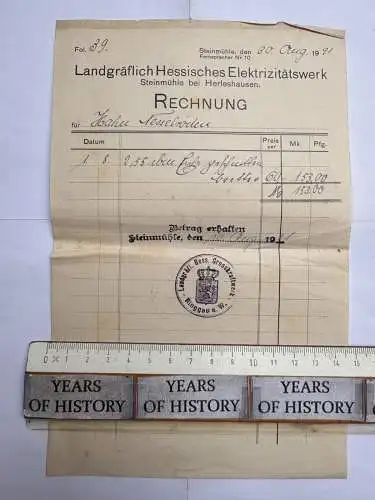 Fol. 39.
Steinmühle, den 30 Aug. 1921
Fernsprecher Nr. 10.
Landgräflich Hessisches Elektrizitätswerk
Steinmühle bei Herleshausen.
RECHNUNG
für Hahn
Datum Preis per Mk. Pfg.
1. 8. 2,55 cbm
bretter 60.- 153,00
153.00
Betrag erhalten
Steinmühle, den Aug. 19
Landgräfl. Hess. Grosskraftwerk
Ringgau a. W.
0 1 2 3 4 5 6 7 8 9 10 11 12 13 14 15
YEARS OF HISTORY YEARS OF HISTORY YEARS OF HISTORY